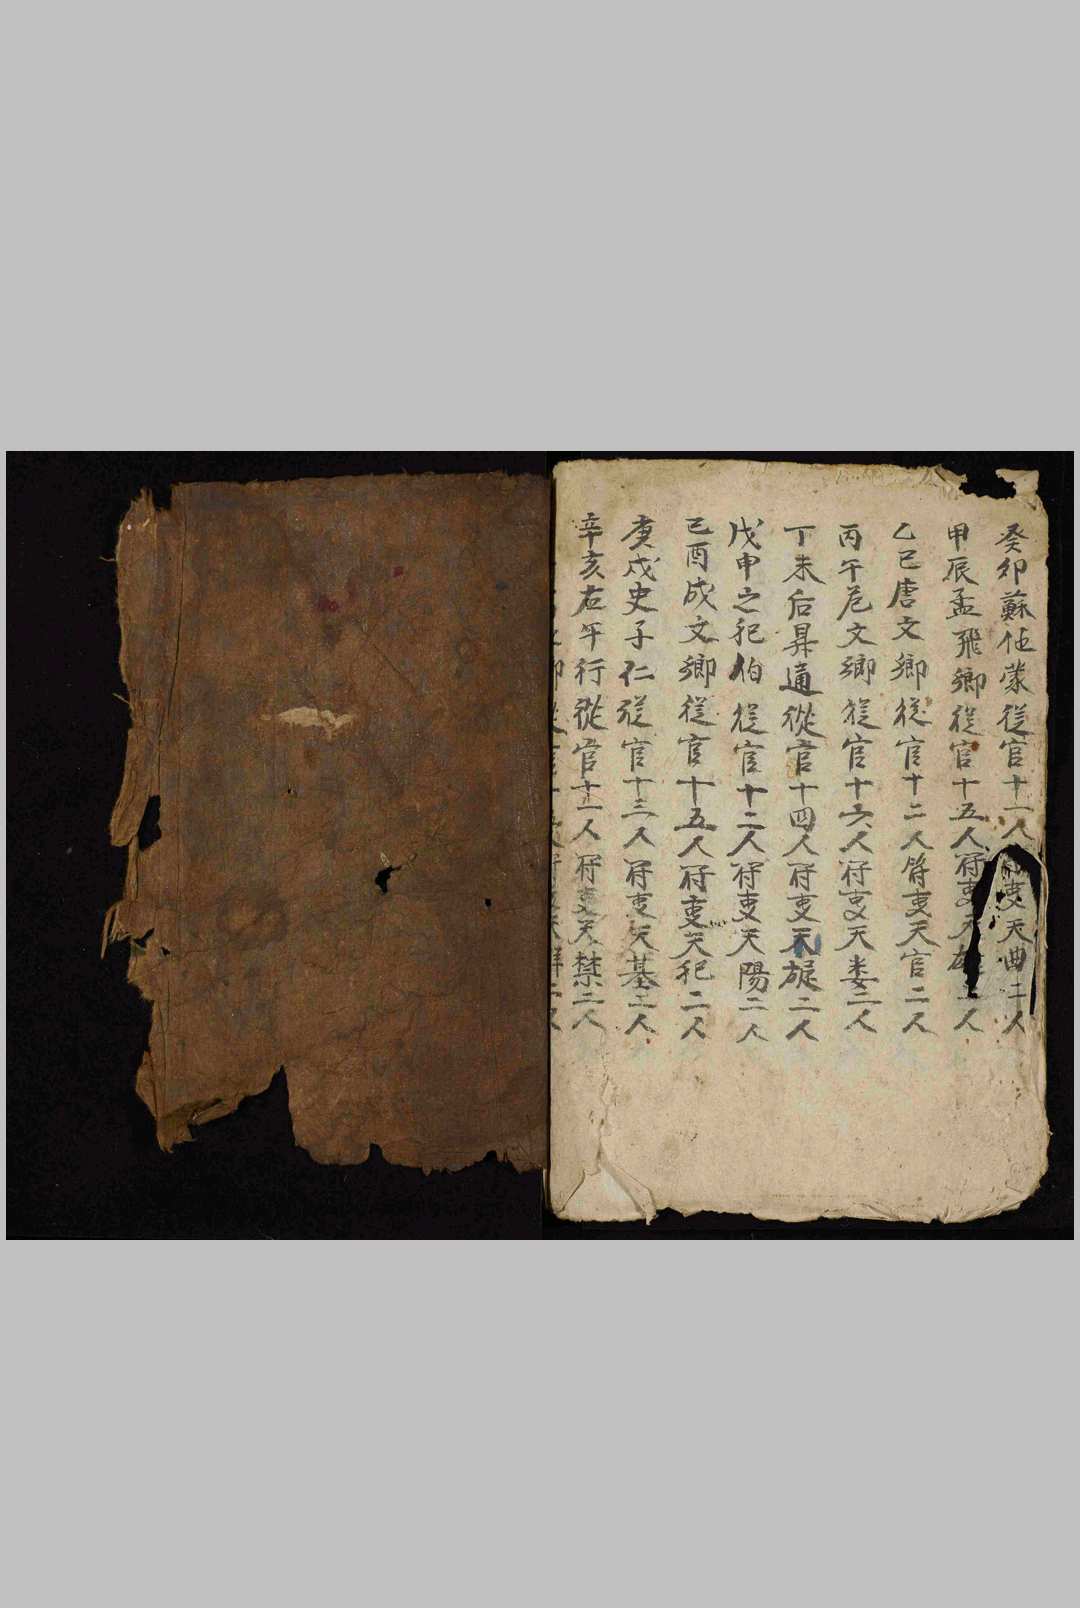 癸卯蘇他蒙従官十一人 吏天曲二人
甲辰孟飛卿従官十五人符吏天雄二人
乙巳唐文卿従官十二人符吏天官二人
丙午尼文卿従官十六人符吏天婁二人
丁未后昇通從官十四人符吏天旋二人
戊申之犯伯従官十二人符吏天陽二人
己酉成文卿従官十五人符吏天犯二人
庚戌史子仁従官十三人符吏天基二人
辛亥右平行從官十一人符吏天禁二人